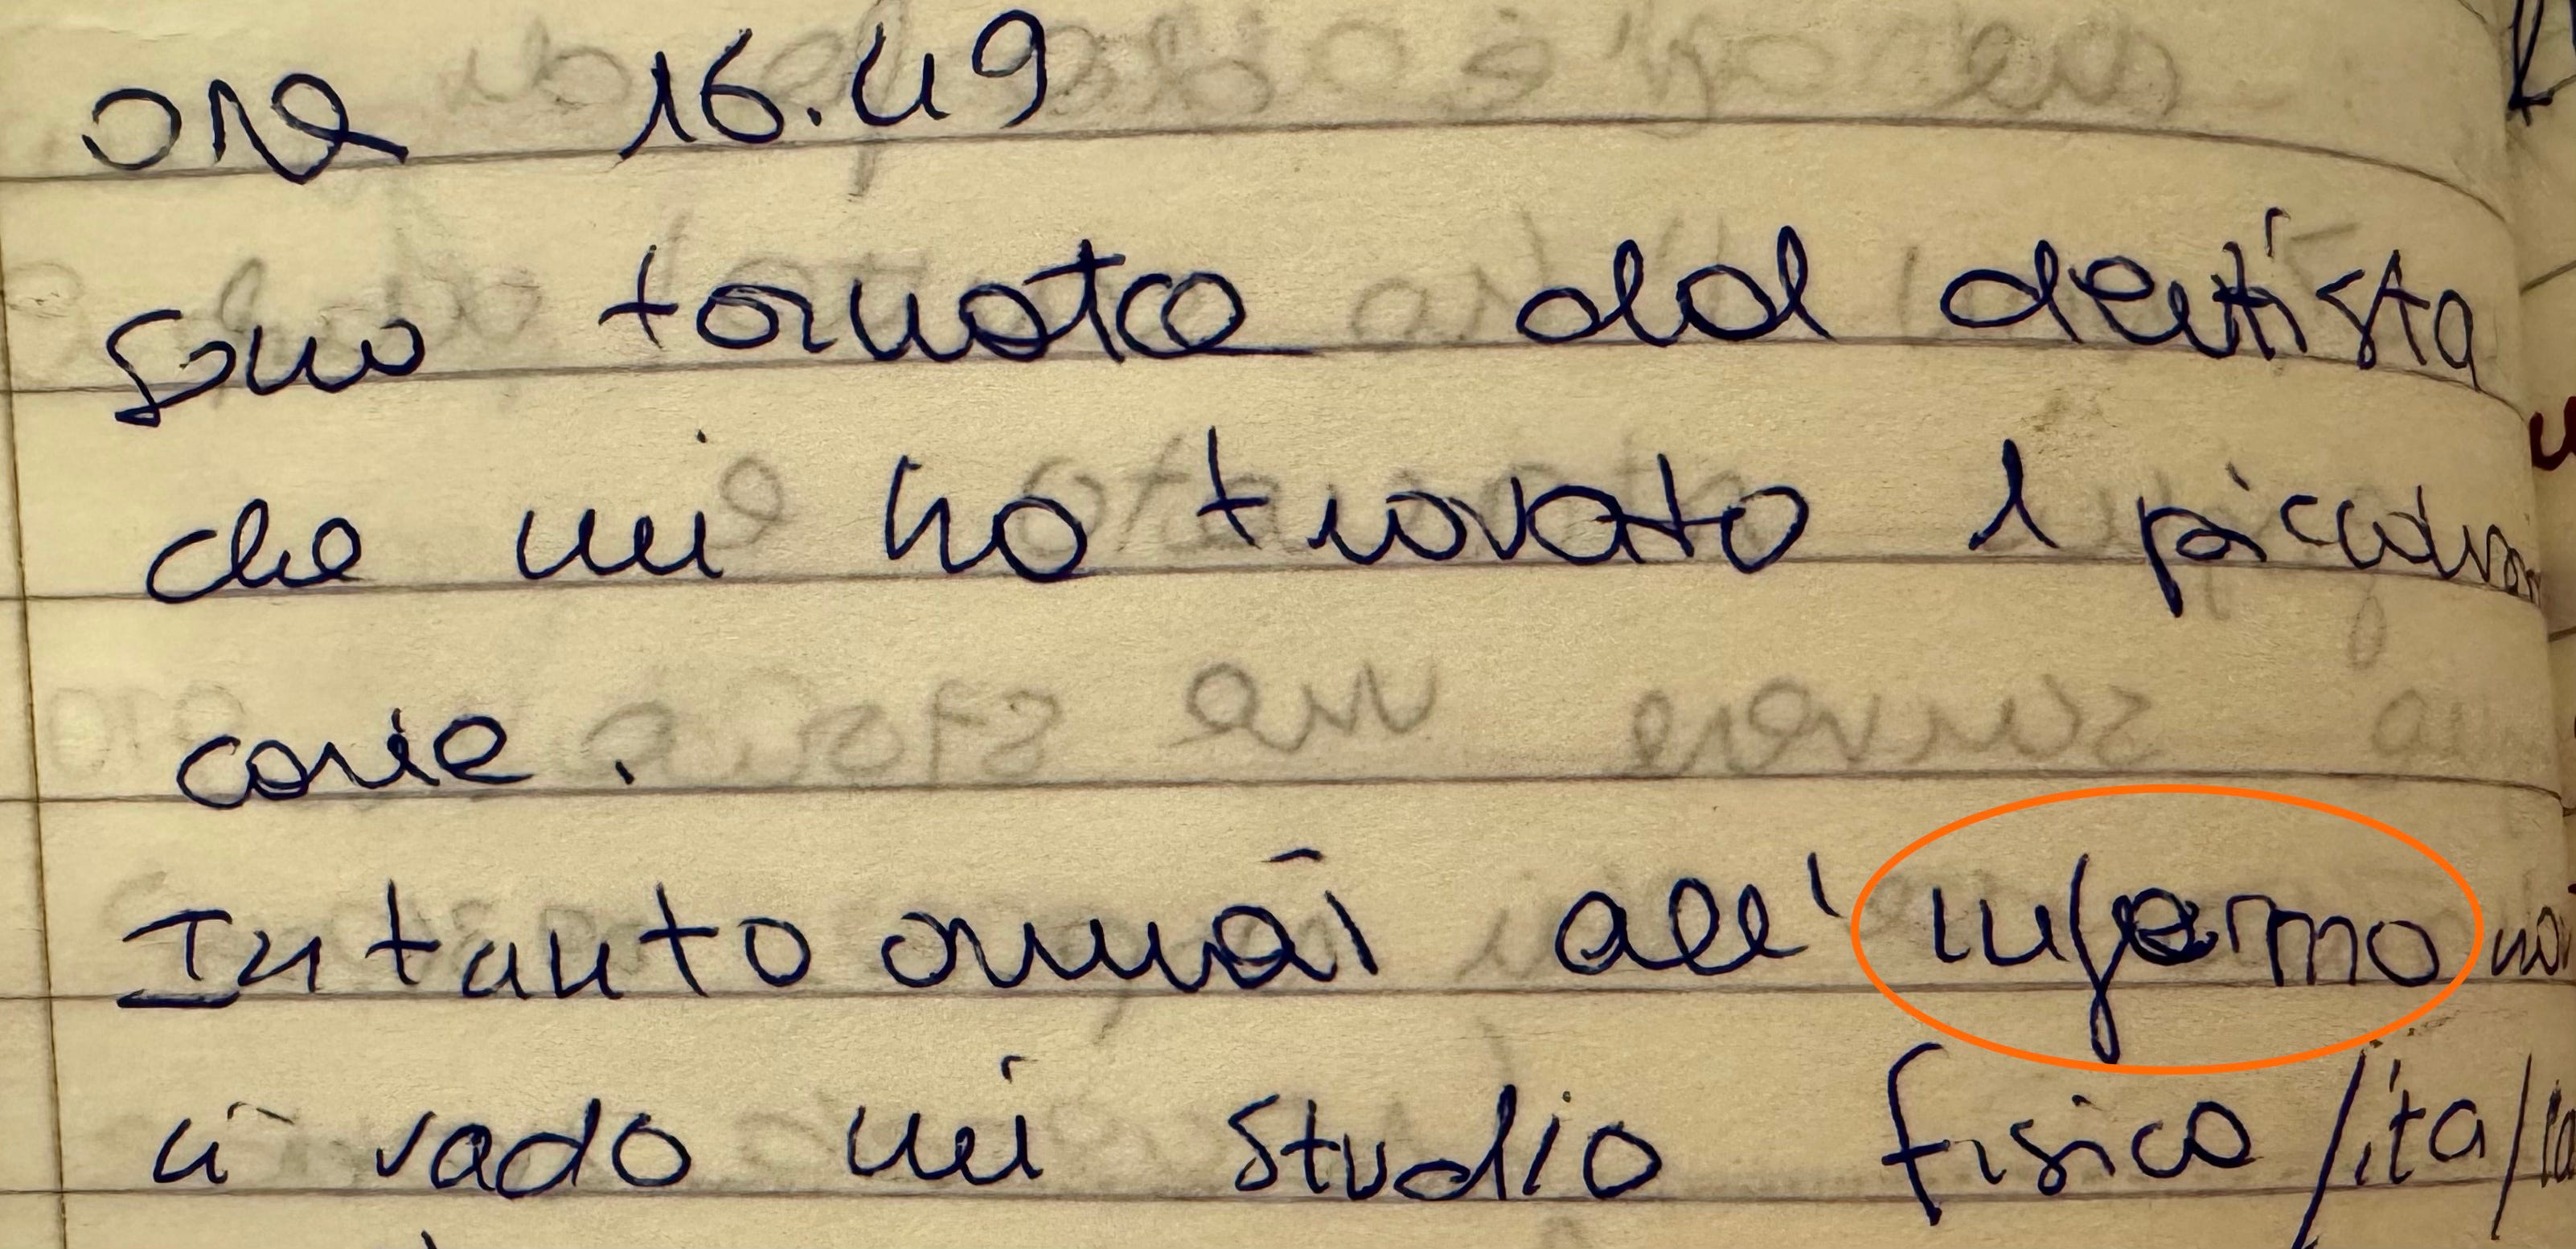 ore 16.49
sono tornata dal dentista
che mi ha trovato 1 piccola
carie.
Intanto ormai all'inferno non
ci vado mi studio fisica/ita/